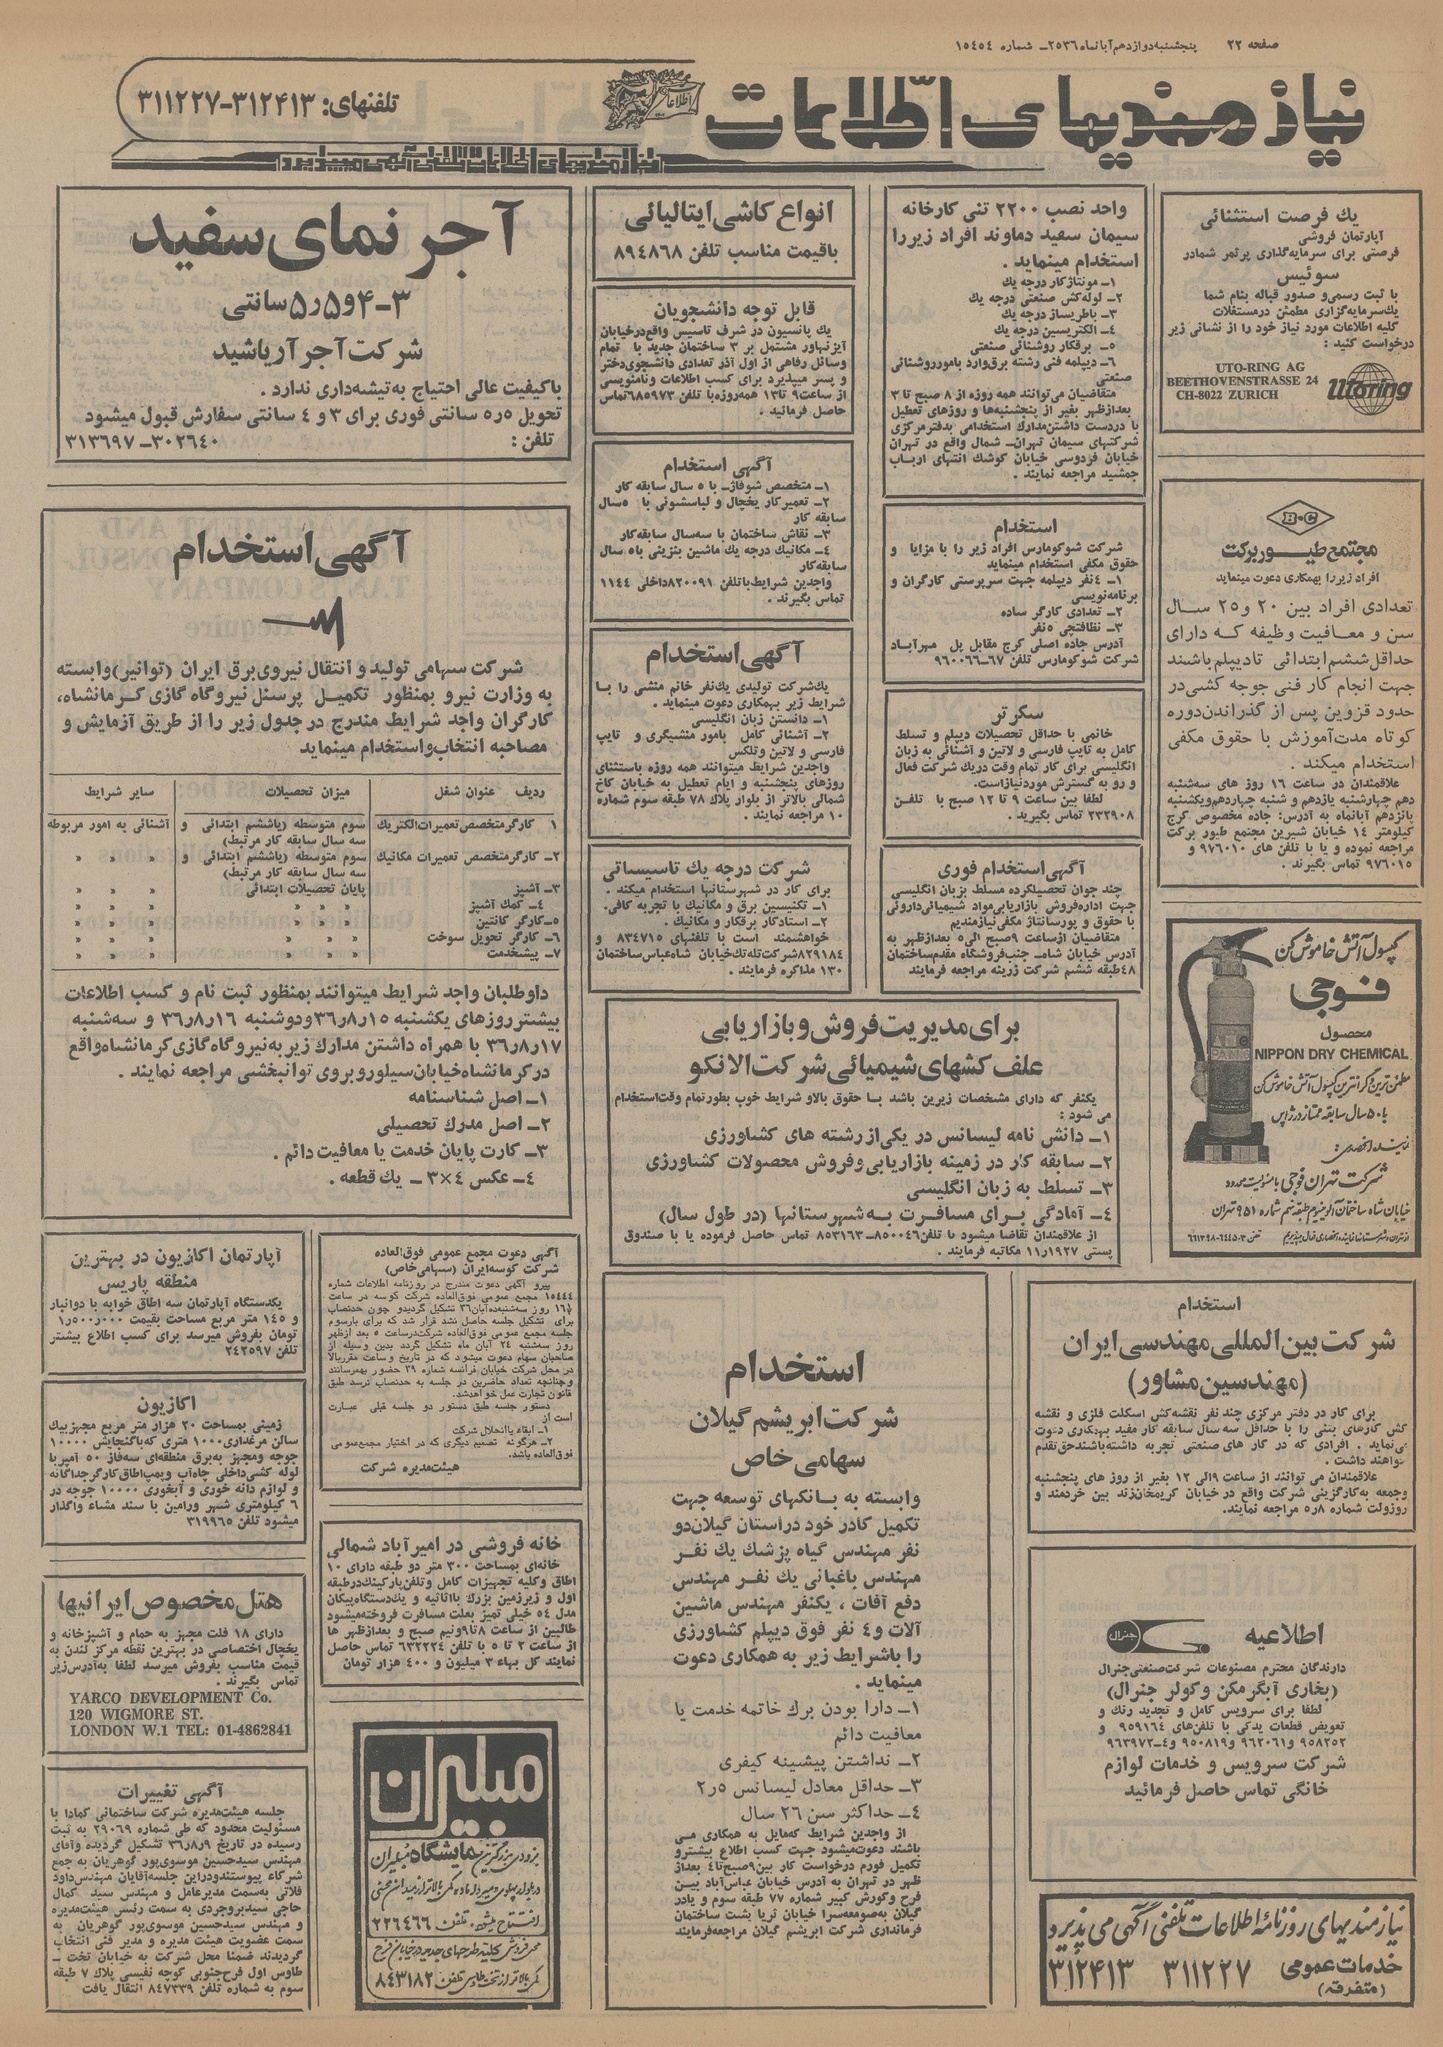 صفحه ۲۲ پنجشنبه دوازدهم آبانماه ۲۵۳۶ـ شماره ۱۵۴۵۴
نیازمندیهای اطلاعات
تلفنهای: ۳۱۲۴۱۳-۳۱۱۲۲۷
نیازمندیهای اطلاعات تلفنی آگهی میپذیرد
یك فرصت استثنائی
آپارتمان فروشی
فرصتی برای سرمایه‌گذاری پرثمر شمادر
سوئیس
با ثبت رسمی‌و صدور قباله بنام شما
یك‌سرمایه‌گزاری مطمئن درمستغلات
کلیه اطلاعات مورد نیاز خود را از نشانی زیر
درخواست کنید :
UTO-RING AG
BEETHOVENSTRASSE 24
CH-8022 ZURICH
Utoring
B.C
مجتمع طیور برکت
افراد زیررا بهمکاری دعوت مینماید
تعدادی افراد بین ۲۰ و۲۵ سال
سن و معافیت وظیفه که دارای
حداقل‌ششم‌ابتدائی تادیپلم باشند
جهت انجام کار فنی جوجه کشی‌در
حدود قزوین پس از گذراندن‌دوره
کوتاه مدت‌آموزش با حقوق مکفی
استخدام میکند .
علاقمندان در ساعت ۱۶ روز های سه‌شنبه
دهم چهارشنبه یازدهم و شنبه چهاردهم‌ویکشنبه
پانزدهم آبانماه به آدرس: جاده مخصوص کرج
کیلومتر ۱۴ خیابان شیرین مجتمع طیور برکت
مراجعه نموده و یا با تلفن های ۹۷۶۰۱۰ و
۹۷۶۰۱۵ تماس بگیرند .
کپسول آتش خاموش کن
فوجی
محصول
NIPPON DRY CHEMICAL
مطمئن‌ترین‌وگرانترین‌کپسول آتش خاموش کن
با ۵۰ سال سابقه ممتاز در ژاپن
نماینده انحصاری:
شرکت تهران فوجی با مسئولیت محدود
خیابان شاه ساختمان آلومینیوم طبقه نهم شماره ۹۵۱ تهران
استخدام
شرکت بین‌المللی مهندسی ایران
(مهندسین مشاور)
برای کار در دفتر مرکزی چند نفر نقشه‌کش اسکلت فلزی و نقشه
کش کارهای بتنی را با حداقل سه سال سابقه کار مفید بهمکاری دعوت
می‌نماید . افرادی که در کار های صنعتی تجربه داشته‌باشندحق‌تقدم
خواهند داشت .
علاقمندان می توانند از ساعت ۹الی ۱۲ بغیر از روز های پنجشنبه
وجمعه به‌کارگزینی شرکت واقع در خیابان کریمخان‌زند بین خردمند و
روزولت شماره ۵ر۸ مراجعه نمایند.
اطلاعیه
جنرال
دارندگان محترم مصنوعات شرکت‌صنعتی‌جنرال
(بخاری آبگرمکن وکولر جنرال)
لطفا برای سرویس کامل و تجدید رنك و
تعویض قطعات یدکی با تلفن‌های ۹۵۹۱۶۴ و
۹۵۸۲۵۲ و۹۶۲۰۶۱ و۹۵۰۸۱۹ و۴ـ۹۶۳۹۷۲
شرکت سرویس و خدمات لوازم
خانگی تماس حاصل فرمائید
نیازمندیهای روزنامهٔ اطلاعات تلفنی آگهی می پذیرد
خدمات‌عمومی ۳۱۱۲۲۷ ۳۱۲۴۱۳
(متفرقه)
واحد نصب ۲۲۰۰ تنی کارخانه
سیمان سفید دماوند افراد زیررا
استخدام مینماید .
۱ـ مونتاژکار درجه یك
۲ـ لوله‌کش صنعتی درجه یك
۳ـ باطریساز درجه یك
۴ـ الکتریسین درجه یك
۵ـ برقکار روشنائی صنعتی
۶ـ دیپلمه فنی رشته برق‌وارد بامورروشنائی
صنعتی
متقاضیان می‌توانند همه روزه از ۸ صبح تا ۳
بعدازظهر بغیر از پنجشنبه‌ها و روزهای تعطیل
با دردست داشتن‌مدارك استخدامی بدفترمرکزی
شرکتهای سیمان تهران‌ـ شمال واقع در تهران
خیابان فردوسی خیابان کوشك انتهای ارباب
جمشید مراجعه نمایند .
استخدام
شرکت شوکومارس افراد زیر را با مزایا و
حقوق مکفی استخدام مینماید
۱ـ ۴نفر دیپلمه جهت سرپرستی کارگران و
برنامه‌نویسی
۲ـ تعدادی کارگر ساده
۳ـ نظافتچی ۵نفر
آدرس جاده اصلی کرج مقابل پل مهرآباد
شرکت شوکومارس تلفن ۶۷ـ۹۶۰۰۶۶
سکرتر
خانمی با حداقل تحصیلات دیپلم و تسلط
کامل به تایپ فارسی و لاتین و آشنائی به زبان
انگلیسی برای کار تمام وقت دریك شرکت فعال
و رو به گسترش موردنیازاست.
لطفا بین ساعت ۹ تا ۱۲ صبح با تلفن
۲۳۲۹۰۸ تماس بگیرید .
آگهی استخدام فوری
چند جوان تحصیلکرده مسلط بزبان انگلیسی
جهت اداره‌فروش بازاریابی‌مواد شیمیائی‌داروئی
با حقوق و پورسانتاژ مکفی‌نیازمندیم
متقاضیان ازساعت ۹صبح الی۵ بعدازظهر به
آدرس خیابان شاه‌ـ جنب‌فروشگاه مقدم‌ساختمان
۴۸طبقه ششم شرکت زرینه مراجعه فرمایند
انواع کاشی ایتالیائی
باقیمت مناسب تلفن ۸۹۴۸۶۸
قابل توجه دانشجویان
یك پانسیون در شرف تاسیس واقع‌درخیابان
آیزنهاور مشتمل بر ۳ ساختمان جدید با تمام
وسائل رفاهی از اول آذر تعدادی دانشجوی‌دختر
و پسر میپذیرد برای کسب اطلاعات ونامنویسی
از ساعت۹ تا۱۳ همه‌روزه‌با تلفن ۶۸۵۹۷۳تماس
حاصل فرمائید .
آگهی استخدام
۱ـ متخصص شوفاژـ با ۵ سال سابقه کار
۲ـ تعمیرکار یخچال و لباسشوئی با ۵سال
سابقه کار
۳ـ نقاش ساختمان با سه‌سال سابقه‌کار
۴ـ مکانیك درجه یك ماشین بنزینی با۵ سال
سابقه‌کار
واجدین شرایط‌باتلفن ۸۲۰۰۹۱داخلی ۱۱۴۴
تماس بگیرند .
آگهی استخدام
یك‌شرکت تولیدی یك‌نفر خانم منشی را بـا
شرایط زیر بهمکاری دعوت مینماید .
۱ـ دانستن زبان انگلیسی
۲ـ آشنائی کامل بامور منشیگری و تایپ
فارسی و لاتین وتلکس
واجدین شرایط میتوانند همه روزه باستثنای
روزهای پنجشنبه و ایام تعطیل به خیابان کاخ
شمالی بالاتر از بلوار پلاك ۷۸ طبقه سوم شماره
۱۰ مراجعه نمایند .
شرکت درجه یك تاسیساتی
برای کار در شهرستانها استخدام میکند .
۱ـ تکنیسین برق و مکانیك با تجربه کافی.
۲ـ استادکار برقکار و مکانیك .
خواهشمند است با تلفنهای ۸۳۴۷۱۵ و
۸۲۹۱۸۴شرکت‌تله‌تك‌خیابان شاه‌عباس‌ساختمان
۱۳۰ مذاکره فرمایند .
برای مدیریت فروش و بازاریابی
علف کشهای شیمیائی شرکت الانکو
یکنفر که دارای مشخصات زیرین باشد بـا حقوق بالاو شرایط خوب بطورتمام وقت‌استخدام
می شود :
۱ـ دانش نامه لیسانس در یکی‌از رشته های کشاورزی
۲ـ سابقه کار در زمینه بازاریابی‌وفروش محصولات کشاورزی
۳ـ تسلط به زبان انگلیسی
۴ـ آمادگی برای مسافرت به‌شهرستانها (در طول سال)
از علاقمندان تقاضا میشود با تلفن۸۵۰۰۴۶ـ۸۵۳۱۶۳ تماس حاصل فرموده یا با صندوق
پستی ۱۹۲۷ر۱۱ مکاتبه فرمایند .
استخدام
شرکت ابریشم گیلان
سهامی خاص
وابسته به بـانکهای توسعه جهت
تکمیل کادر خود دراستان گیلان‌دو
نفر مهندس گیاه پزشك یك نفـر
مهندس باغبانی یك نفـر مهندس
دفع آفات ، یکنفر مهندس ماشین
آلات و۴ نفر فوق دیپلم کشاورزی
را باشرایط زیر به همکاری دعوت
مینماید .
۱ـ دارا بودن برك خاتمه خدمت یا
معافیت دائم
۲ـ نداشتن پیشینه کیفری
۳ـ حداقل معدل لیسانس ۵ر۲
۴ـ حداکثر سن ۲۶ سال
از واجدین شرایط که‌مایل به همکاری مـی
باشند دعوت‌میشود جهت کسب اطلاع بیشترو
تکمیل فورم درخواست کار بین۹صبح‌تا۴ بعداز
ظهر در تهران به آدرس خیابان عباس‌آباد بیـن
فرح وکورش کبیر شماره ۷۷ طبقه سوم و یادر
گیلان به‌صومعه‌سرا خیابان ثریا پشت ساختمان
فرمانداری شرکت ابریشم گیلان مراجعه‌فرمایند
آجر نمای سفید
۳-۴و۵ر۵ سانتی
شرکت آجر آریاشید
باکیفیت عالی احتیاج به‌تیشه‌داری ندارد .
تحویل ۵ر۵ سانتی فوری برای ۳ و ۴ سانتی سفارش قبول میشود
تلفن : ۳۰۲۶۴۰ـ ۳۱۳۶۹۷
آگهی استخدام
شرکت سهامی تولید و انتقال نیروی برق ایران (توانیر)وابسته
به وزارت نیرو بمنظور تکمیل پرسنل نیروگاه گازی کرمانشاه،
کارگران واجد شرایط مندرج در جدول زیر را از طریق آزمایش و
مصاحبه انتخاب‌واستخدام مینماید
ردیف عنوان شغل میزان تحصیلات سایر شرایط
۱ کارگرمتخصص‌تعمیرات‌الکتریك سوم متوسطه (یاششم ابتدائی و آشنائی به امور مربوطه
سه سال سابقه کار مرتبط)
۲ـ کارگرمتخصص تعمیرات مکانیك سوم متوسطه (یاششم ابتدائی و » » »
سه سال سابقه کار مرتبط)
۳ـ آشپز پایان تحصیلات ابتدائی » » »
۴ـ کمك آشپز » » » » » »
۵ـ کارگر کانتین » » » » » »
۶ـ کارگر تحویل سوخت » » » » » »
۷ـ پیشخدمت » » » » » »
داوطلبان واجد شرایط میتوانند بمنظور ثبت نام و کسب اطلاعات
بیشترروزهای یکشنبه ۱۵ر۸ر۳۶ودوشنبه ۱۶ر۸ر۳۶ و سه‌شنبه
۱۷ر۸ر۳۶ با همراه داشتن مدارك زیربه‌نیروگاه‌گازی‌کرمانشاه‌واقع
درکرمانشاه‌خیابان‌سیلوروبروی توانبخشی مراجعه نمایند .
۱ـ اصل شناسنامه
۲ـ اصل مدرك تحصیلی
۳ـ کارت پایان خدمت یا معافیت دائم .
۴ـ عکس ۴×۳ ـ یك قطعه .
آگهی دعوت مجمع عمومی فوق‌العاده
شرکت کوسه‌ایران (سهامی‌خاص)
پیرو آگهی دعوت مندرج در روزنامه اطلاعات شماره
۱۵۴۴۴ مجمع عمومی فوق‌العاده شرکت کوسه در ساعت
۱۶ روز سه‌شنبه‌ده‌آبان۳۶ تشکیل گردیدو چون حدنصاب
برای تشکیل جلسه حاصل نشد قرار شد که برای بارسوم
جلسه مجمع عمومی فوق‌العاده شرکت‌درساعت ۵ بعد ازظهر
روز سه‌شنبه ۲۴ آبان ماه تشکیل گردد بدین وسیله از
صاحبان سهام دعوت میشود که در تاریخ و ساعت مقرربالا
در محل شرکت خیابان فرانسه شماره ۳۹ حضور بهمرسانند
وچنانچه تعداد حاضرین در جلسه به حدنصاب نرسد طبق
قانون تجارت عمل خواهدشد.
دستور جلسه طبق دستور دو جلسه قبلی عبارت
است از
۱ـ ابقاء یاانحلال شرکت
۲ـ هرگونه تصمیم دیگری که در اختیار مجمع‌عمومی
فوق‌العاده باشد.
هیئت‌مدیره شرکت
خانه فروشی در امیرآباد شمالی
خانه‌ای بمساحت ۳۰۰ متر دو طبقه دارای ۱۰
اطاق وکلیه تجهیزات کامل وتلفن‌پارکینك‌درطبقه
اول و زیرزمین بزرك بااثاثیه و یك‌دستگاه‌پیکان
مدل ۵۴ خیلی تمیز بعلت مسافرت فروخته‌میشود
طالبین از ساعت ۸تا۹ونیم صبح و بعدازظهر ها
از ساعت ۲ تا ۵ با تلفن ۶۳۲۲۲۴ تماس حاصل
نمایند کل بهاء ۳ میلیون و ۴۰۰ هزار تومان
مبلیران
بزودی بزرگترین نمایشگاه مبلیران
افتتاح میشود تلفن: ۲۲۶۴۶۶
کمی بالاتر از تخت طاوس تلفن: ۸۴۳۱۸۲
آپارتمان اکازیون در بهترین
منطقه پاریس
یکدستگاه آپارتمان سه اطاق خوابه با دوانبار
و ۱۴۵ متر مربع مساحت بقیمت ۰۰۰ر۵۰۰ر۱
تومان بفروش میرسد برای کسب اطلاع بیشتر
تلفن ۲۴۲۵۹۷
اکازیون
زمینی بمساحت ۲۰ هزار متر مربع مجهزبیك
سالن مرغداری۱۰۰۰ متری که‌باگنجایش ۱۰۰۰۰
جوجه ومجهز به‌برق منطقه‌ای سه‌فاز ۵۰ آمپربا
لوله کشی‌داخلی چاه‌آب وپمپ‌اطاق‌کارگرجداگانه
و لوازم دانه خوری و آبخوری ۱۰۰۰۰ جوجه در
۶ کیلومتری شهر ورامین با سند مشاء واگذار
میشود تلفن ۳۱۹۹۶۵
هتل مخصوص ایرانیها
دارای ۱۸ فلت مجهز به حمام و آشپزخانه و
یخچال اختصاصی در بهترین نقطه مرکز لندن به
قیمت مناسب بفروش میرسد لطفا به‌آدرس‌زیر
تماس بگیرند .
YARCO DEVELOPMENT Co.
120 WIGMORE ST.
LONDON W.1 TEL: 01-4862841
آگهی تغییرات
جلسه هیئت‌مدیره شرکت ساختمانی کمادا با
مسئولیت محدود که طی شماره ۲۹۰۶۹ به ثبت
رسیده در تاریخ ۹ر۸ر۳۶ تشکیل گردیده وآقای
مهندس سیدحسین موسوی‌پور گوهریان به جمع
شرکاء پیوستندودراین جلسه‌آقایان مهندس‌داود
فلاتی به‌سمت مدیرعامل و مهندس سید کمال
حاجی سیدبروجردی به سمت رئیس هیئت‌مدیره
و مهندس سیدحسین موسوی‌پور گوهریان به
سمت عضویت هیئت مدیره و مدیر فنی انتخاب
گردیدند ضمنا محل شرکت به خیابان تخت ـ
طاوس اول فرح‌جنوبی کوچه نفیسی پلاك ۷ طبقه
سوم به شماره تلفن ۸۴۷۳۳۹ انتقال یافت